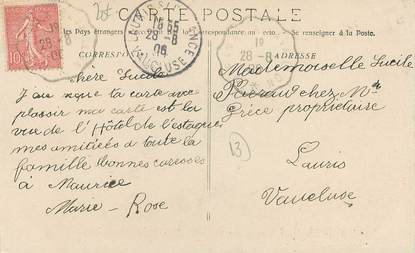 CARTE POSTALE
Les Pays étrangers la Correspondance au recto. Se renseigner à la Poste.
CORRESPONDANCE
ADRESSE
10
28 - 8
VAUCLUSE
28 - 8
06
19
28 - 8
chère Lucile
J'ai reçu ta carte avec
plaisir ma carte est la
vue de l'Hôtel de l'estaque
mes amitiées à toute la
famille bonnes caresses
à Maurice
Marie - Rose
Mademoiselle Lucile
chez Mr
propriétaire
Lauris
Vaucluse
13